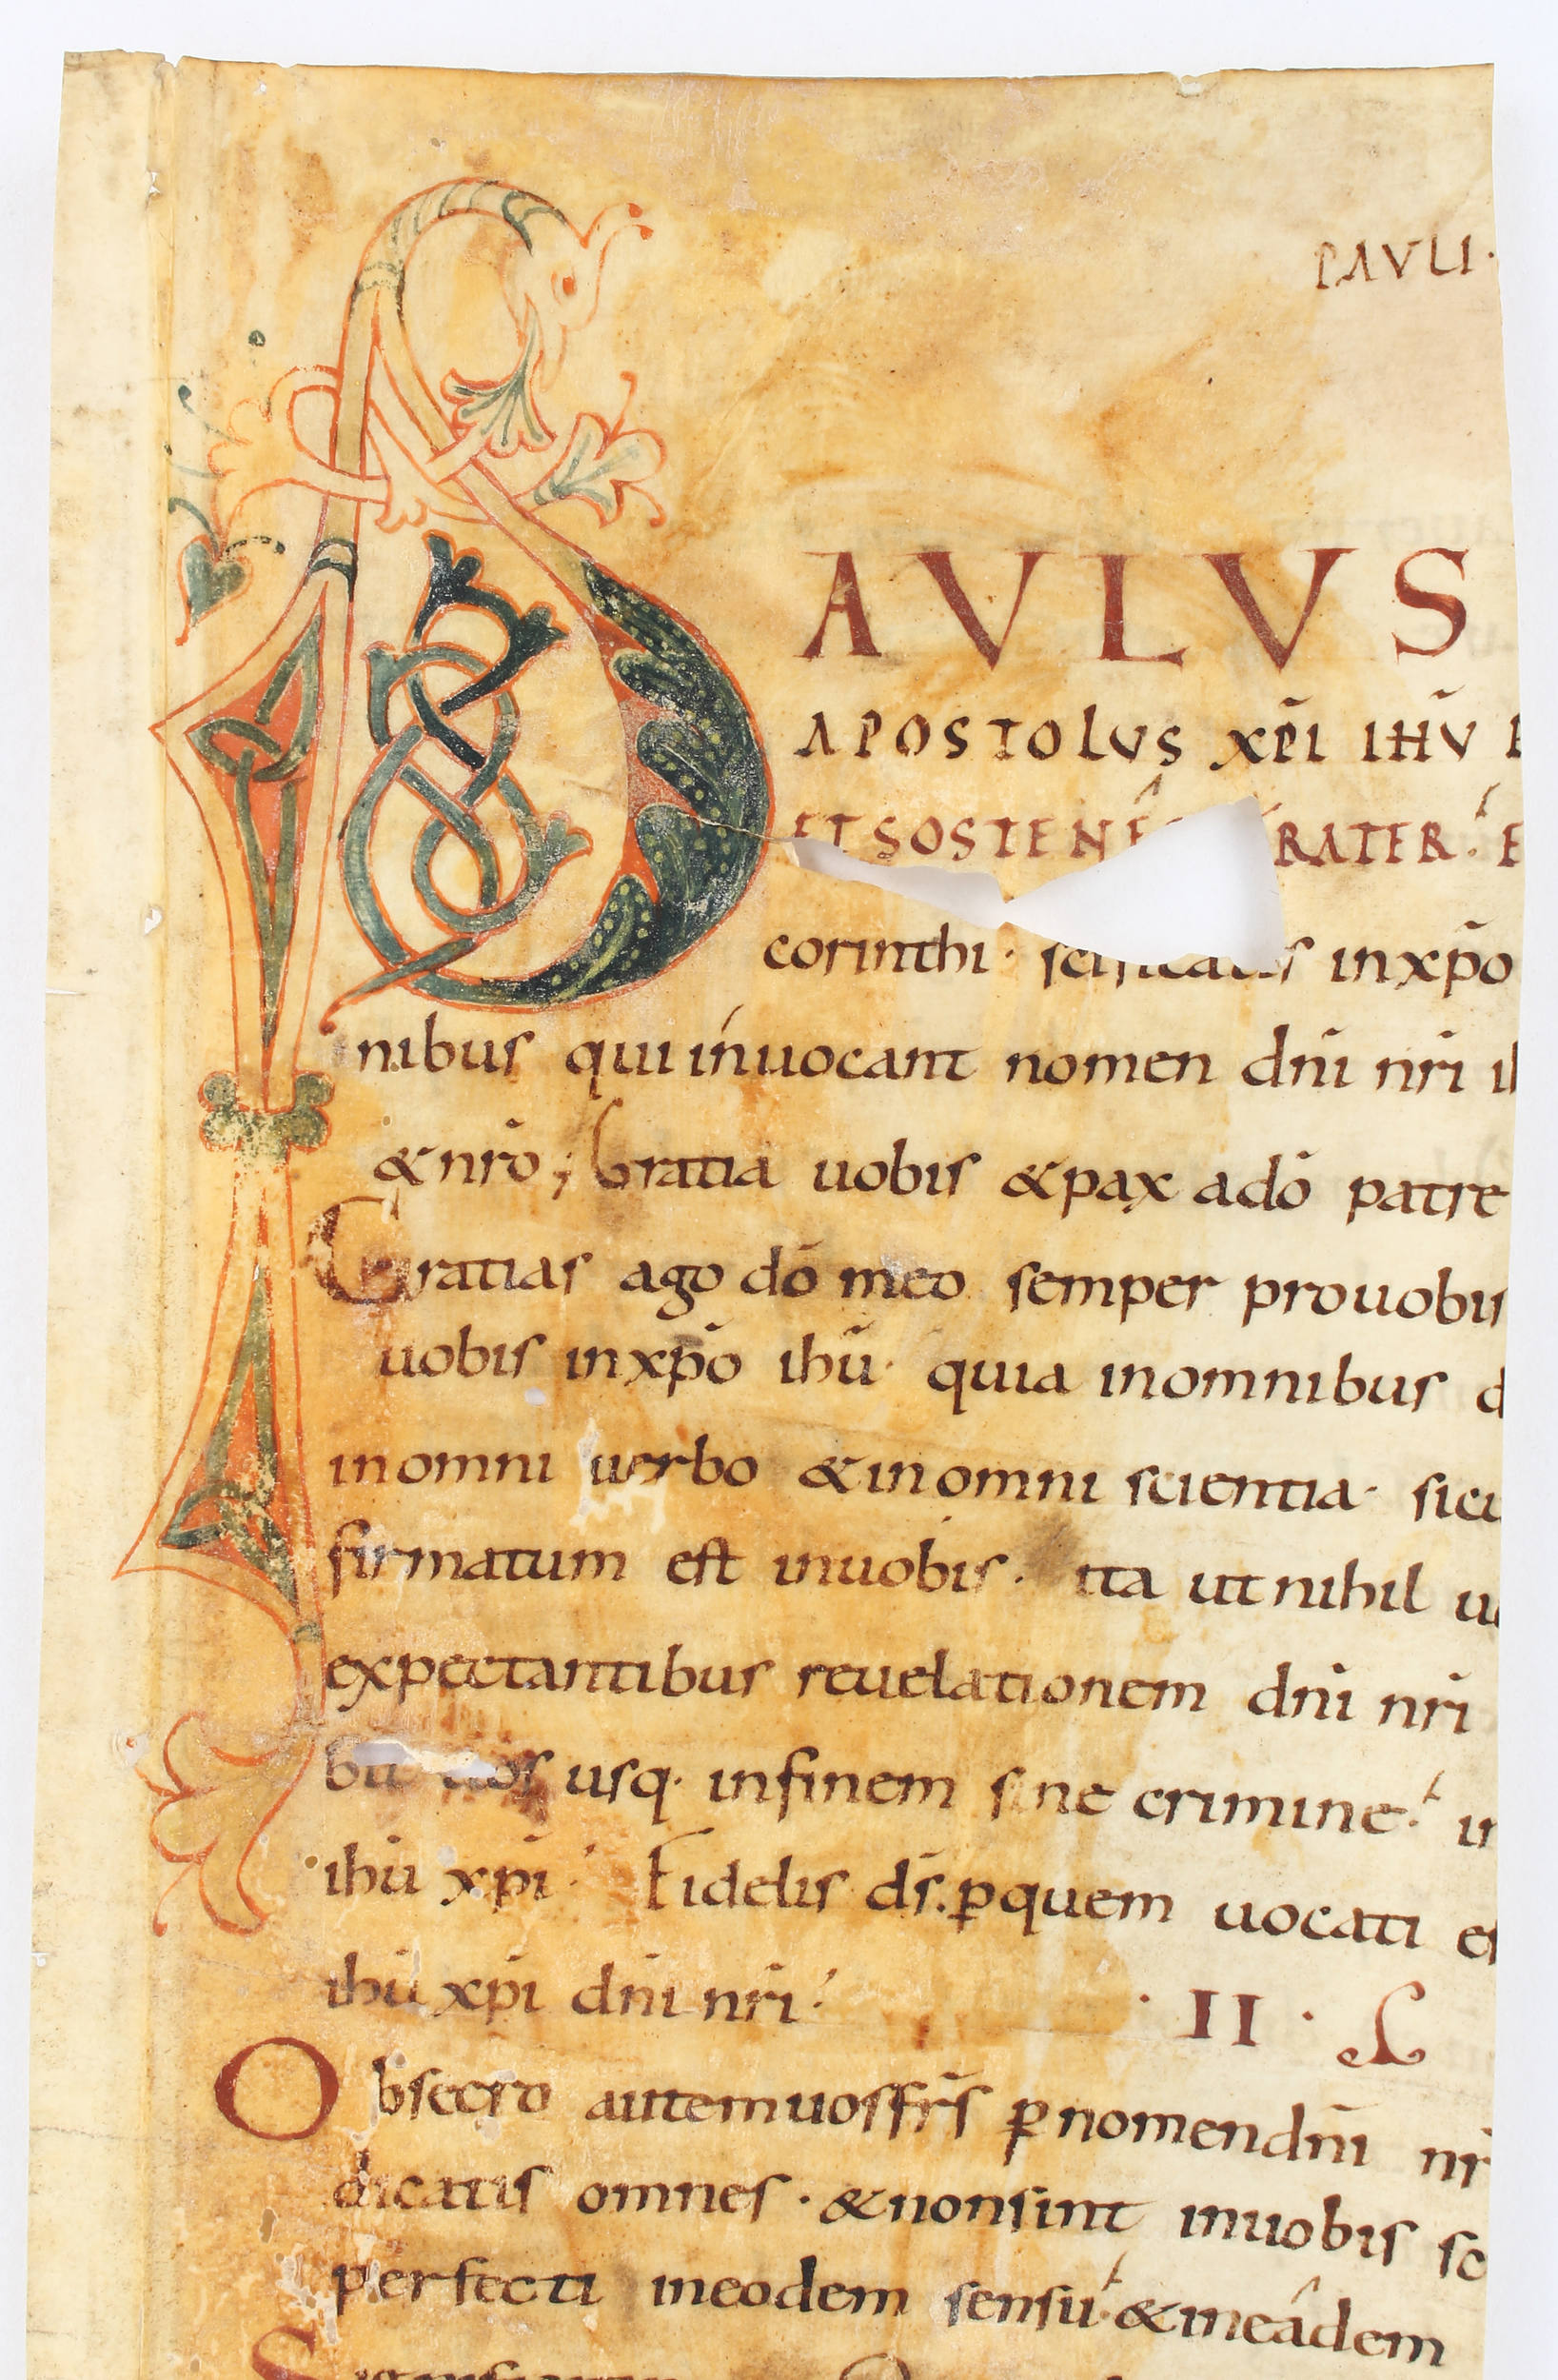 PAVLI·
PAVLVS
APOSTOLVS XP̄I IHV̄
ET SOSTENES FRATER
corinthi · sc̄ificatis inxp̄o
nibus qui inuocant nomen dn̄i nr̄i
&nr̄o; Gratia uobis &pax adō patre
Gratias ago dō meo semper prouobis
uobis inxp̄o ihū· quia inomnibus
inomni uerbo &inomni scientia·
firmatum est inuobis· ita ut nihil
expectantibus reuelationem dn̄i nr̄i
bit uos usq· infinem sine crimine·
ihū xp̄i· Fidelis ds̄. ꝑquem uocati
ihū xp̄i dn̄i nr̄i·
· II · L
Obsecro autem uos fr̄s ꝑ nomen dn̄i
dicatis omnes · &nonsint inuobis
perfecti ineodem sensu· &ineadem